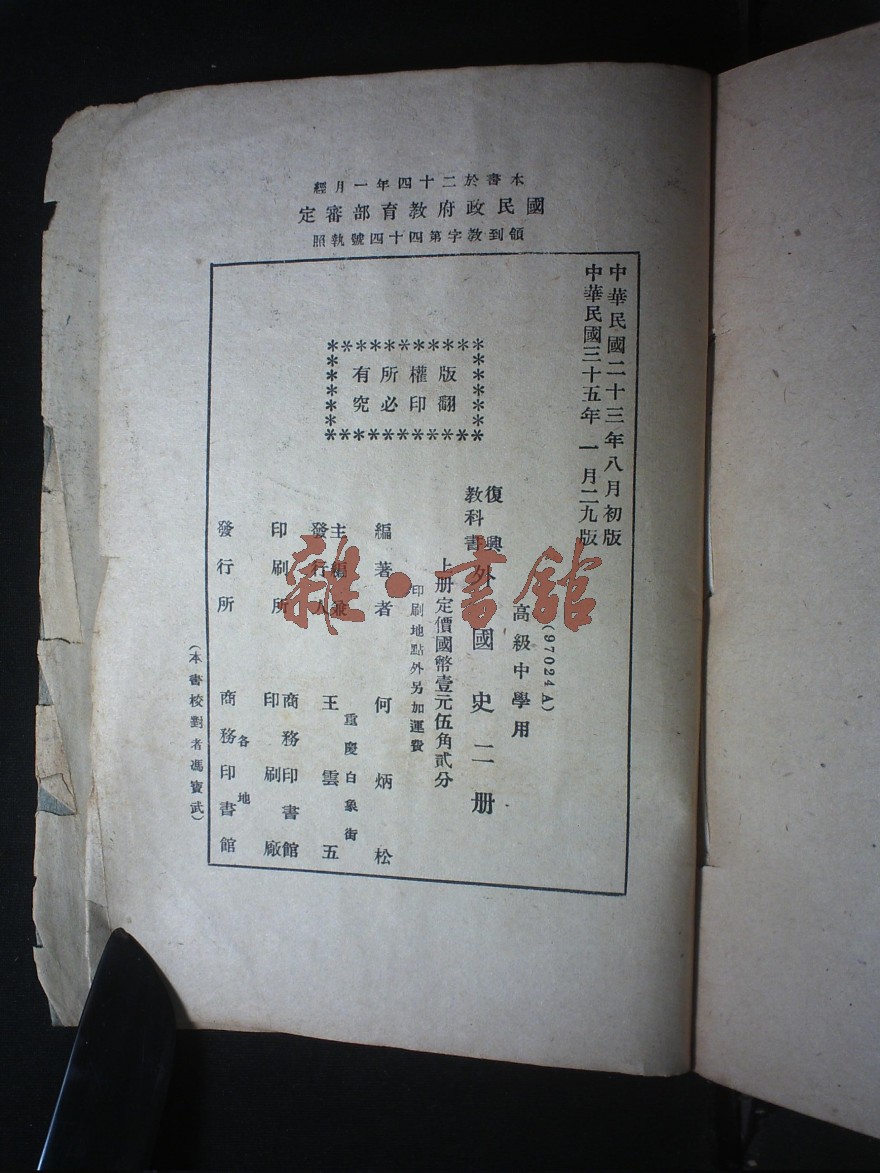 本書於二十四年一月經
國民政府教育部審定
領到教字第四十四號執照
中華民國二十三年八月初版
中華民國三十五年一月二九版
版權所有
翻印必究
(97024A)
高級中學用
復興
教科書
外國史二册
上册定價國幣壹元伍角貳分
印刷地點外另加運費
編著者 何炳松
重慶白象街
主編兼
發行人
王雲五
印刷所
商務印書館
印刷廠
各地
發行所 商務印書館
(本書校對者馮寶武)
雜·書館